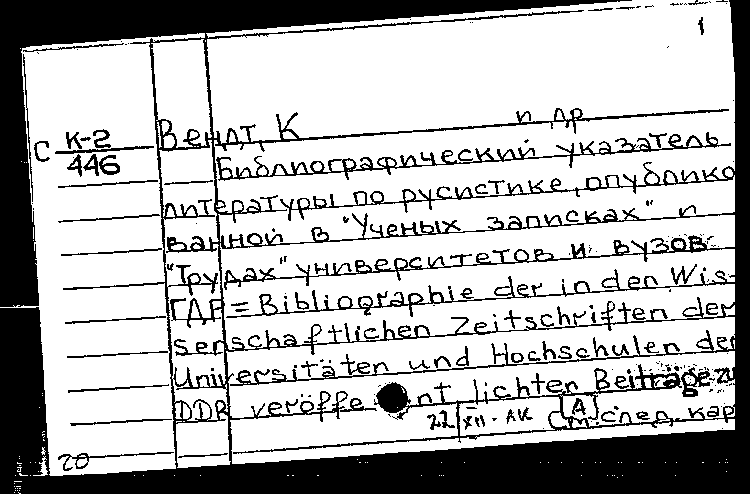 1
Вендт, К и др
С К-2
446
Библиографический указатель
литературы по русистике, опублико
ванной в "Ученых записках" и
"Трудах" университетов и вузов
ГДР = Bibliographie der in den Wis-
senschaftlichen Zeitschriften der
Universitäten und Hochschulen der
DDR veröffe nt lichten Beiträge zu
22/XII - АК А См. след. кар
20